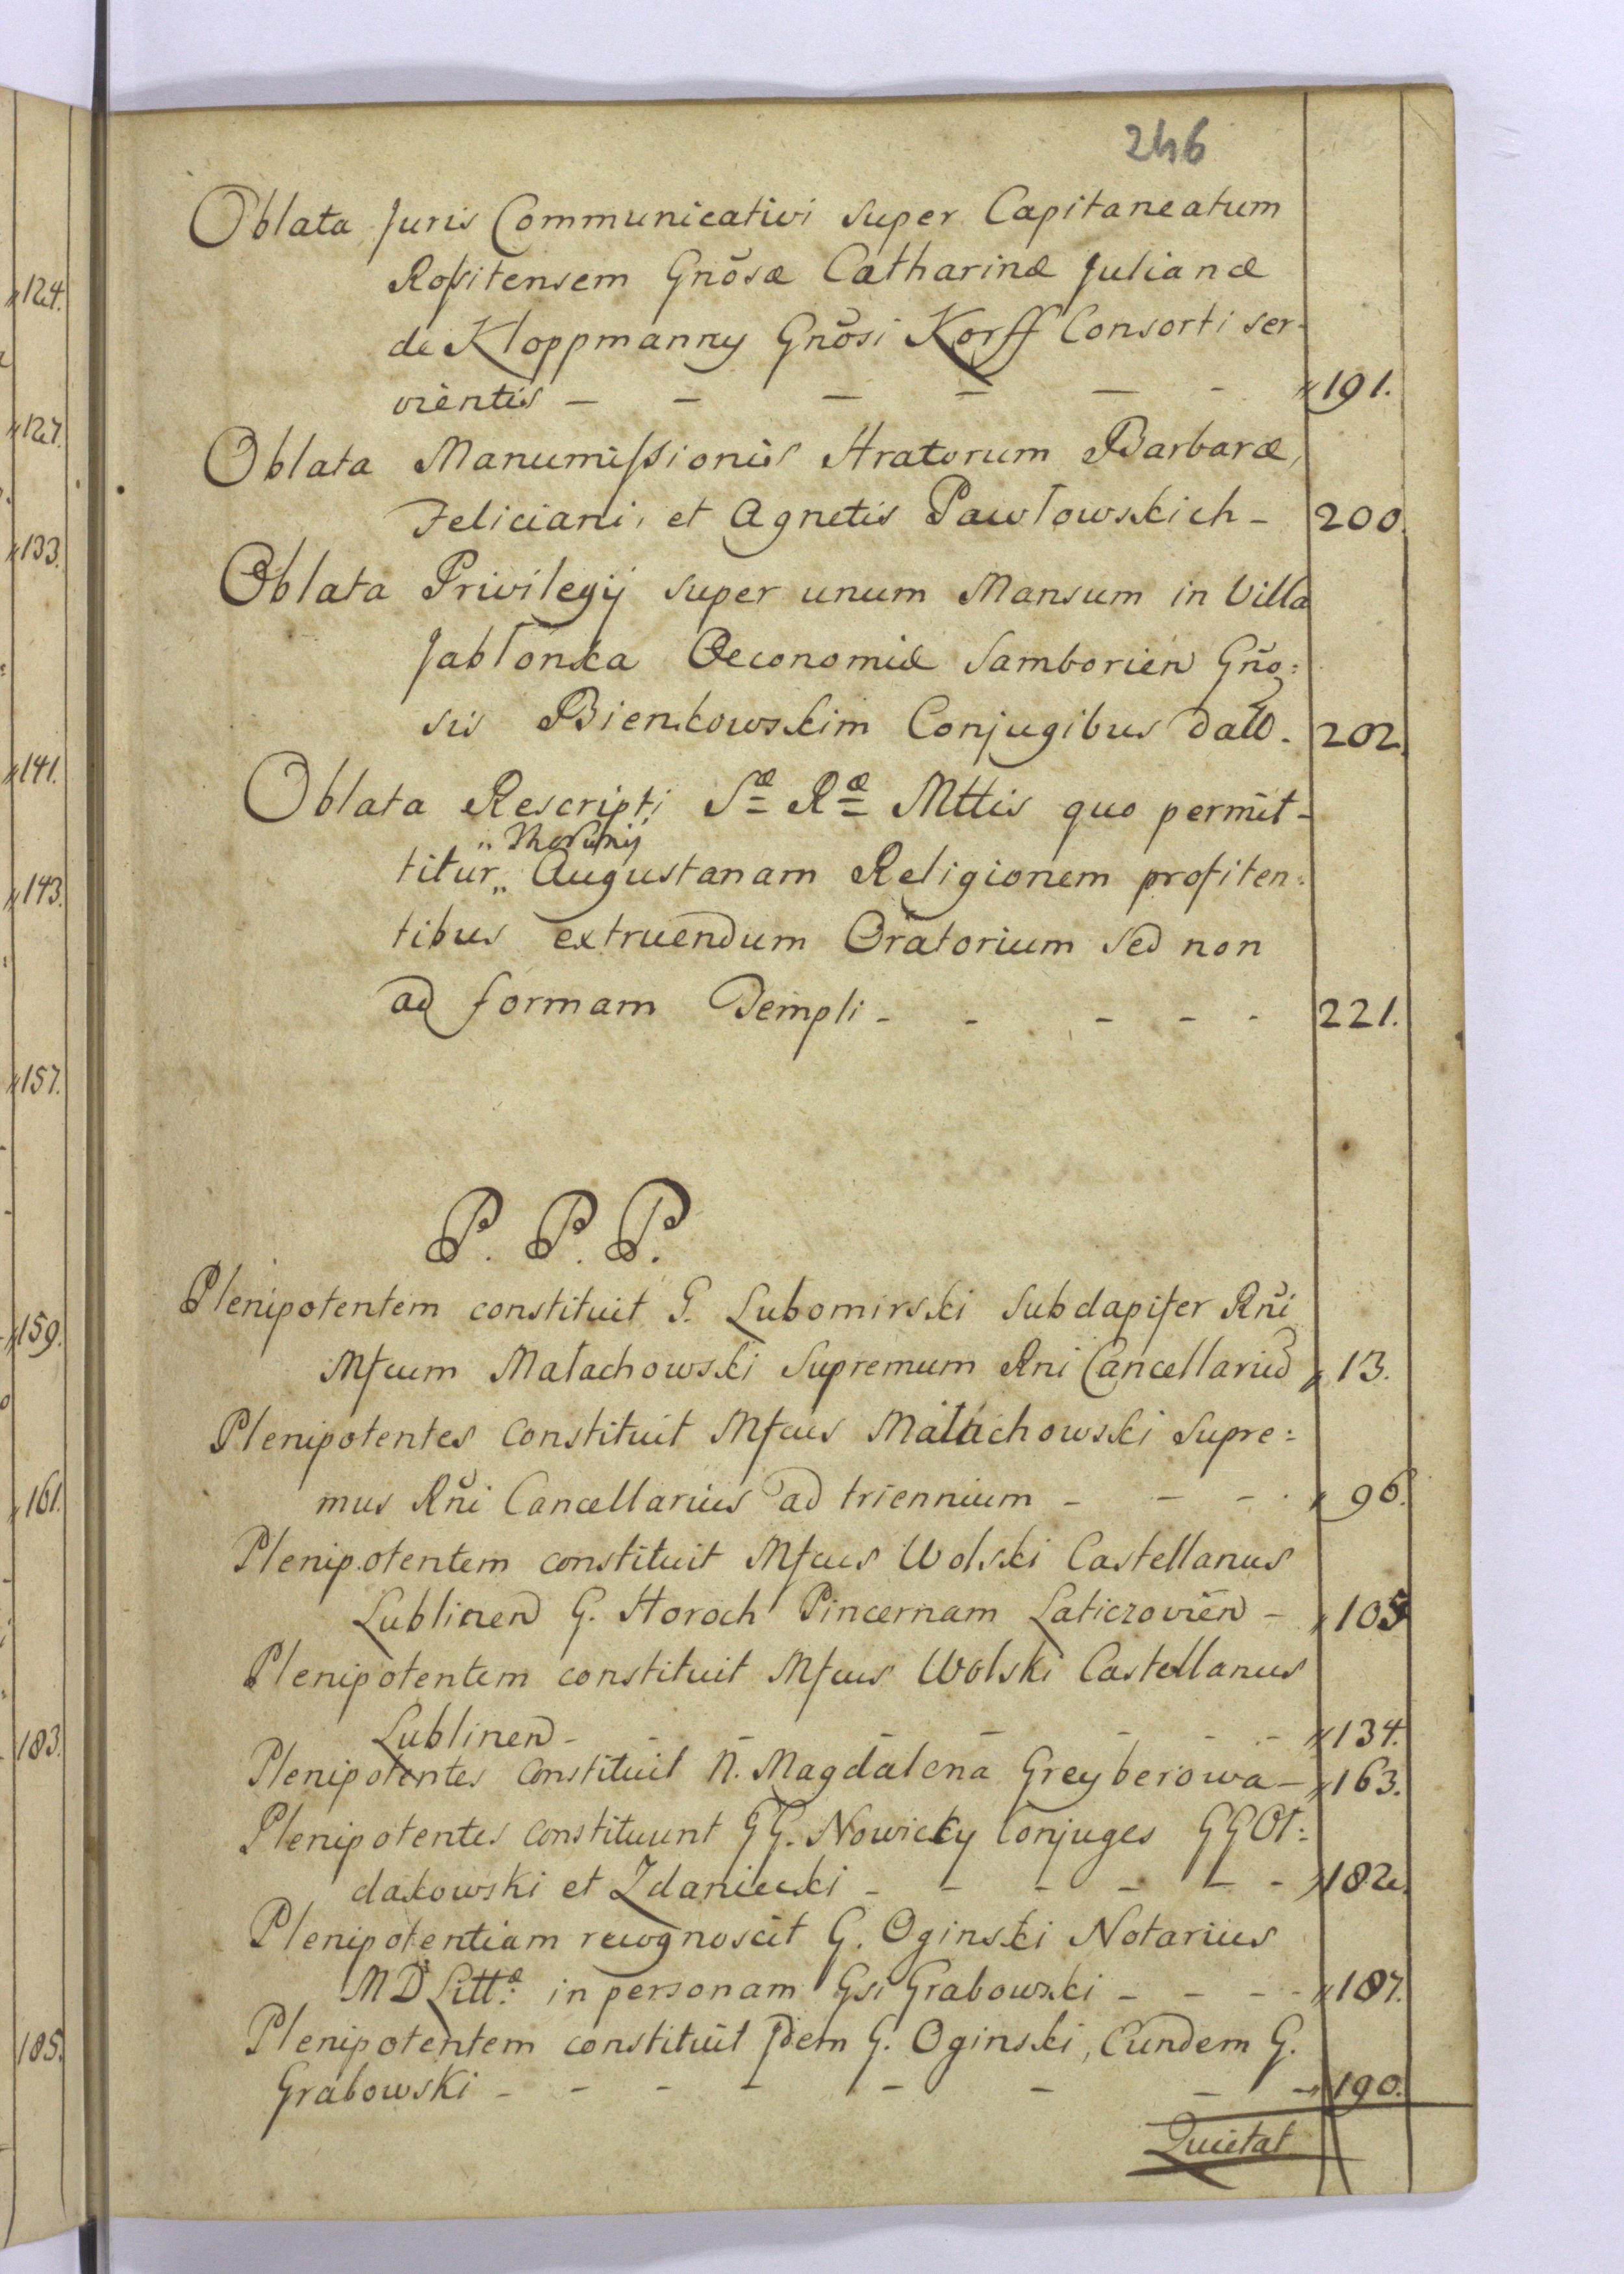 246
Oblata Juris Communicativi super Capitaneatum
Rositensem Gnõsæ Catharinæ Julianæ
de Kloppmanny Gnõsi Korff Consorti ser-
vientis - - - - - - " 191.
Oblata Manumissionis Hratorum Barbaræ,
Feliciani, et Agnetis Pawłowskich - 200.
Oblata Privilegij super unum Mansum in Villa
Jabłonka Oeconomiæ Samborien Gño:
sis Bienkowskim Conjugibus dato. 202.
Oblata Rescripti Sæ Ræ Mttis quo permit-
" Thorunij
titur „ Augustanam Religionem profiten:
tibus extruendum Oratorium sed non
ad formam Templi - - - - - 221.
P. P. P.
Plenipotentem constituit G. Lubomirski Subdapifer Rñi
Mfcum Małachowski Supremum Rni Cancellariu " 13.
Plenipotentes constituit Mfcus Małachowski Supre:
mus Rñi Cancellarius ad triennium - - - " 96.
Plenipotentem constituit Mfcus Wolski Castellanus
Lublinen G. Horoch Pincernam Laticzovien - " 105
Plenipotentem constituit Mfcus Wolski Castellanus
Lublinen - - - - - - - " 134.
Plenipotentes constituit N. Magdalena Greyberowa - " 163.
Plenipotentes constituunt GG. Nowicky Conjuges GG Oł:
dakowski et Zdaniecki - - - - - - " 182.
Plenipotentiam recognoscit G. Oginski Notarius
M D Littæ in personam Gsi Grabowski - - - - " 187.
Plenipotentem constituit Idem G. Oginski, Eundem G.
Grabowski - - - - - - - - " 190.
Quietat
124.
127.
133.
141.
143.
157.
159.
161.
183.
185.